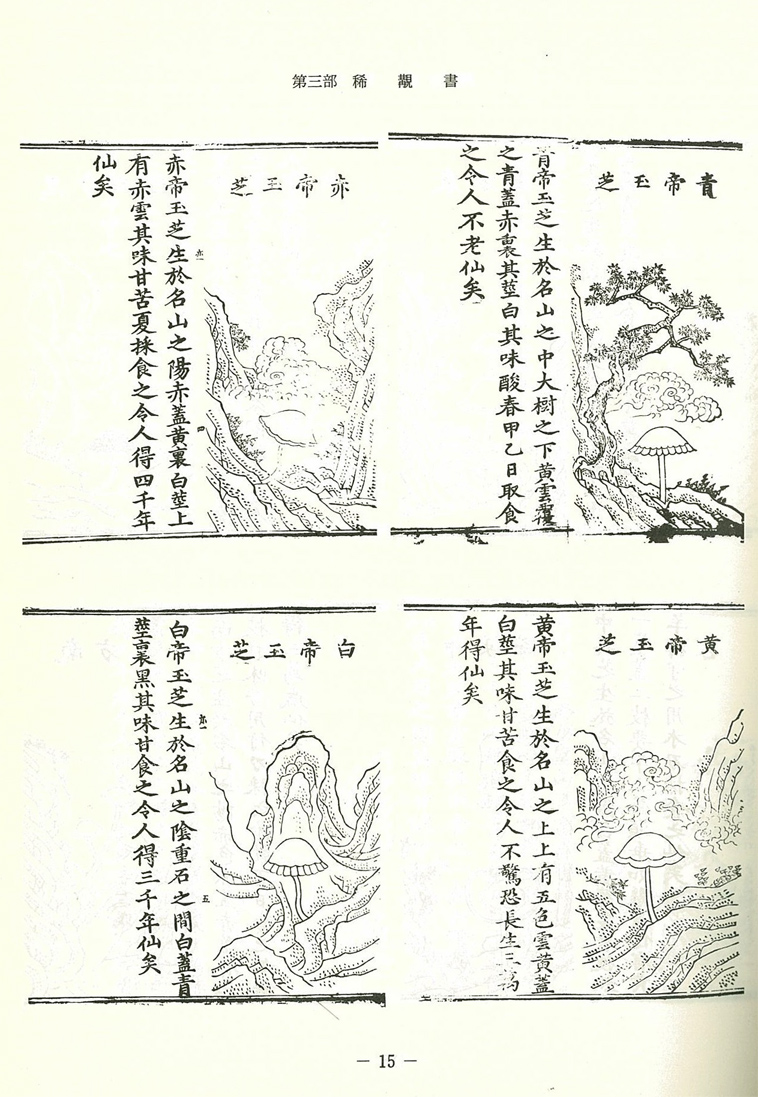 第三部 稀 覯 書
青帝玉芝
青帝玉芝生於名山之中大樹之下黃雲覆
之青蓋赤裏其莖白其味酸春甲乙日取食
之令人不老仙矣
赤帝玉芝
赤帝玉芝生於名山之陽赤蓋黃裏白莖上
有赤雲其味甘苦夏採食之令人得四千年
仙矣
四
黃帝玉芝
黃帝玉芝生於名山之上上有五色雲黃蓋
白莖其味甘苦食之令人不驚恐長生三萬
年得仙矣
白帝玉芝
白帝玉芝生於名山之陰重石之間白蓋青
莖裏黑其味甘食之令人得三千年仙矣
五
— 15 —